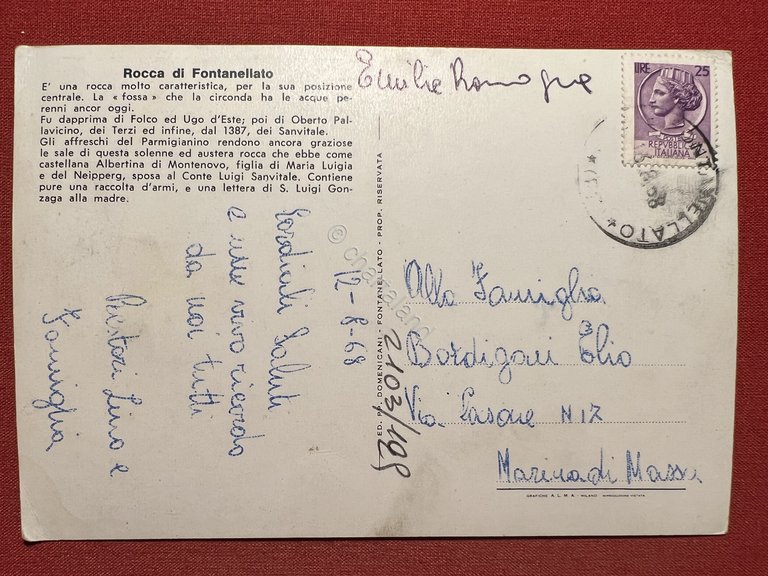 Rocca di Fontanellato
E' una rocca molto caratteristica, per la sua posizione
centrale. La « fossa » che la circonda ha le acque pe-
renni ancor oggi.
Fu dapprima di Folco ed Ugo d'Este; poi di Oberto Pal-
lavicino, dei Terzi ed infine, dal 1387, dei Sanvitale.
Gli affreschi del Parmigianino rendono ancora graziose
le sale di questa solenne ed austera rocca che ebbe come
castellana Albertina di Montenovo, figlia di Maria Luigia
e del Neipperg, sposa al Conte Luigi Sanvitale. Contiene
pure una raccolta d'armi, e una lettera di S. Luigi Gon-
zaga alla madre.
Emilia Romagna
LIRE 25
REPUBBLICA
ITALIANA
FONTANELLATO
12-8-68
Cordiali Saluti
e un vivo ricordo
da noi tutti
Lino e
Famiglia
ED. P. DOMENICANI - FONTANELLATO - PROP. RISERVATA
2103/198
© cartoland
Alla Famiglia
Bordigoni Elio
Via Casone N 12
Marina di Massa
GRAFICHE A.L.M.A. - MILANO RIPRODUZIONE VIETATA